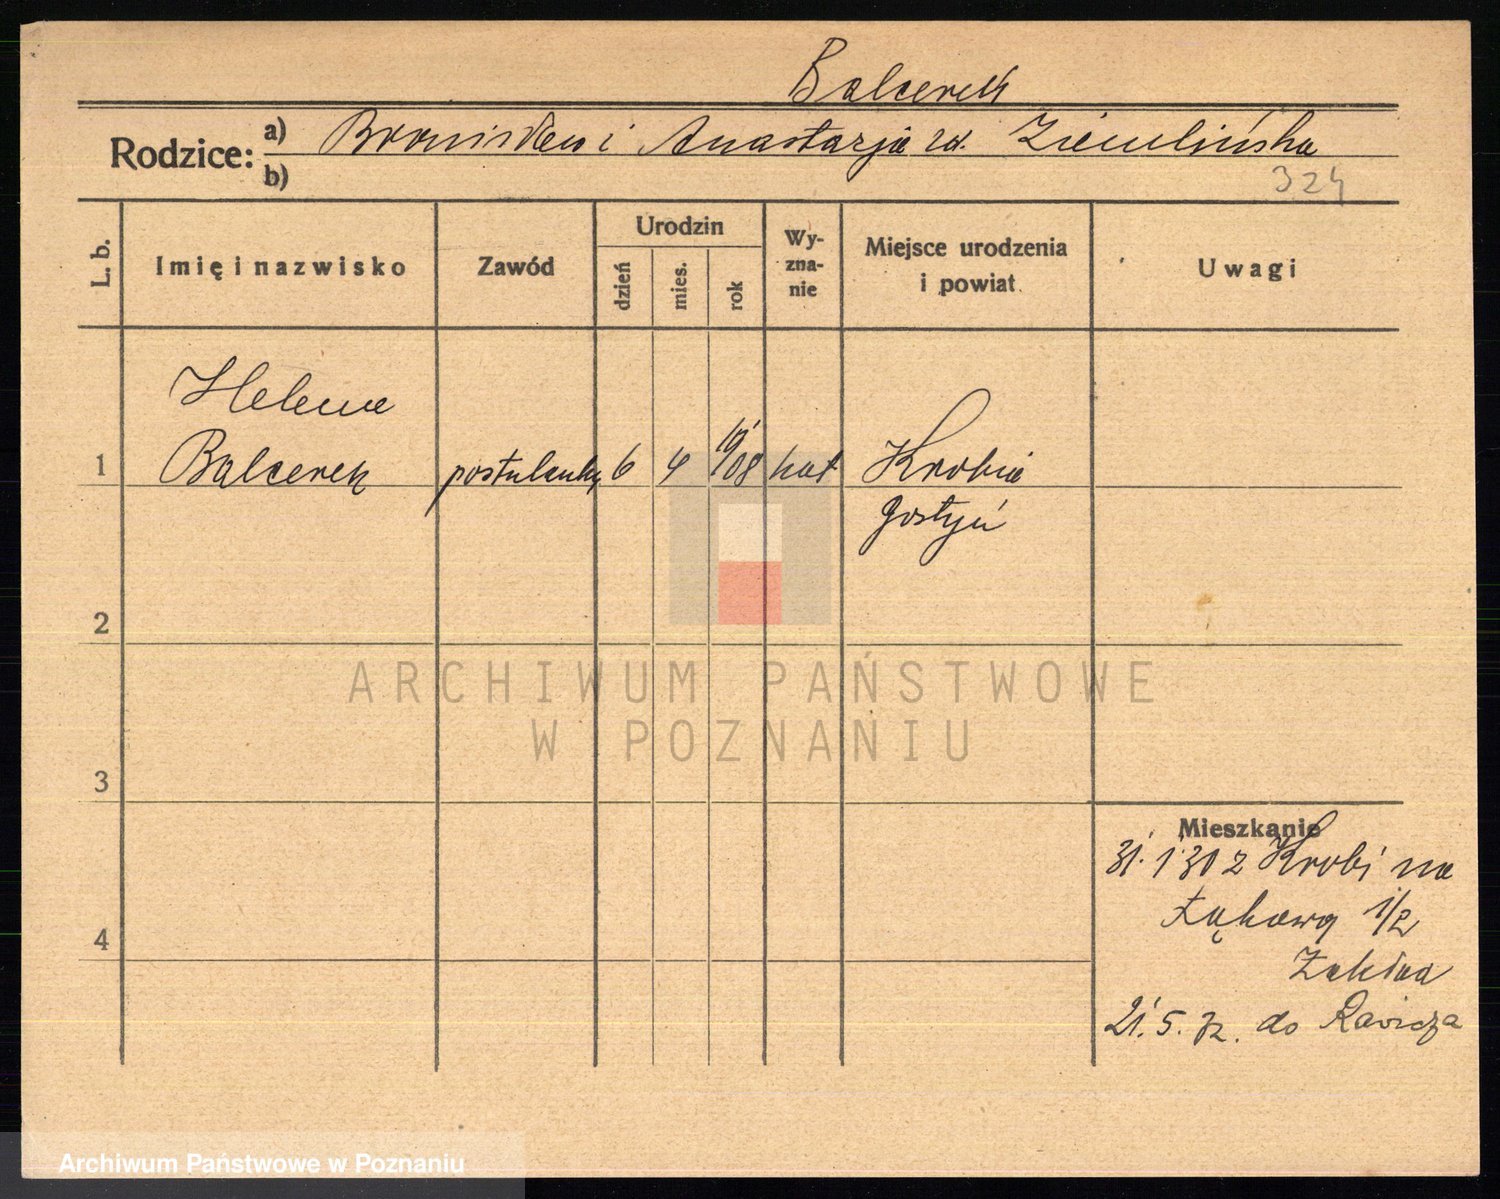 Balcerek
Rodzice: a) Bronisław i Anastazja zd. Ziemlińska
b)
324
L. b.
Imię i nazwisko
Zawód
Urodzin
dzień
mies.
rok
Wy-
zna-
nie
Miejsce urodzenia
i powiat
Uwagi
Helena
1 Balcerek postulantka 6 4 19/08 kat Krobia
Gostyń
2
3
4
Mieszkanie
31. 1 30 z Krobi na
Łąkową 1/2
Zakład
21. 5. 32. do Rawicza
ARCHIWUM PAŃSTWOWE
W POZNANIU
Archiwum Państwowe w Poznaniu